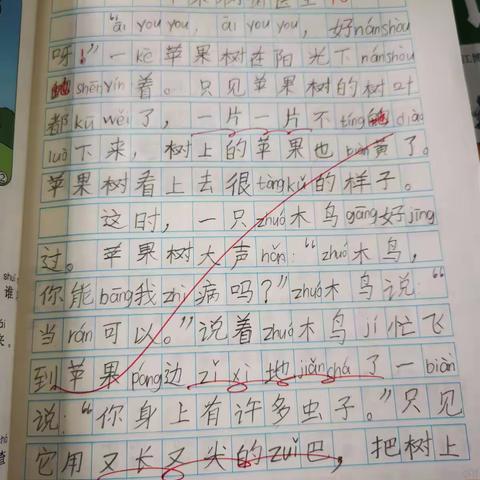 "āi you you, āi you you, 好nánshòu
呀!"一kē苹果树在阳光下nánshòu
shēnyín着。只见苹果树的树叶
都kūwěi了,一片一片不tíng地diào
luò下来,树上的苹果也biàn黄了。
苹果树看上去很tòngkǔ的样子。
这时,一只zhuó木鸟gāng好jīng
过。苹果树大声hǎn:"zhuó木鸟,
你能bāng我zhì病吗?"zhuó木鸟说:"
当rán可以。"说着zhuó木鸟jí忙飞
到苹果páng边zǐxì地jiǎnchá了一biàn
说:"你身上有许多虫子。"只见
它用又长又尖的zuǐ巴,把树上